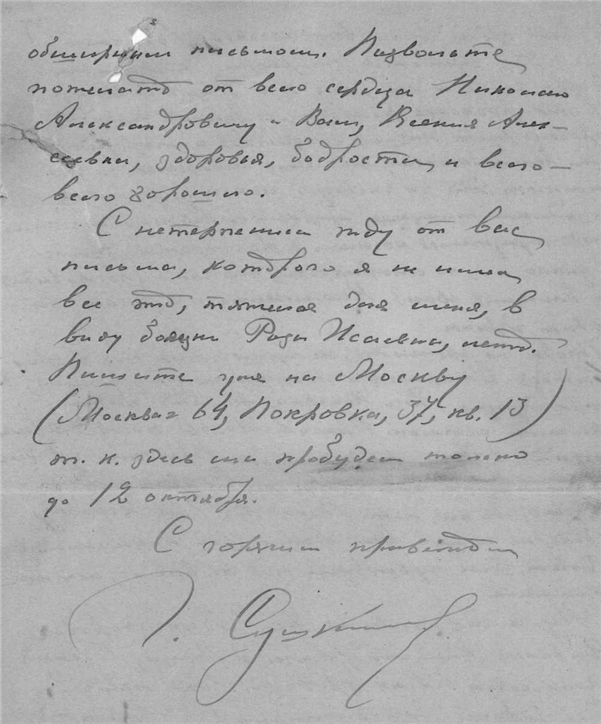 обширным письмом. Позвольте
пожелать от всего сердца Николаю
Александровичу и Вам, Ксения Алек-
сеевна, здоровья, бодрости и всего-
всего хорошего.
С нетерпением жду от вас
письма, которого я не имел
все тяжелое для меня, в
виду Розы Исаевны, лето.
Пишите уже на Москву
(Москва 64, Покровка, 37, кв. 13)
т. к. здесь мы пробудем только
до 12 октября.
С горячим приветом